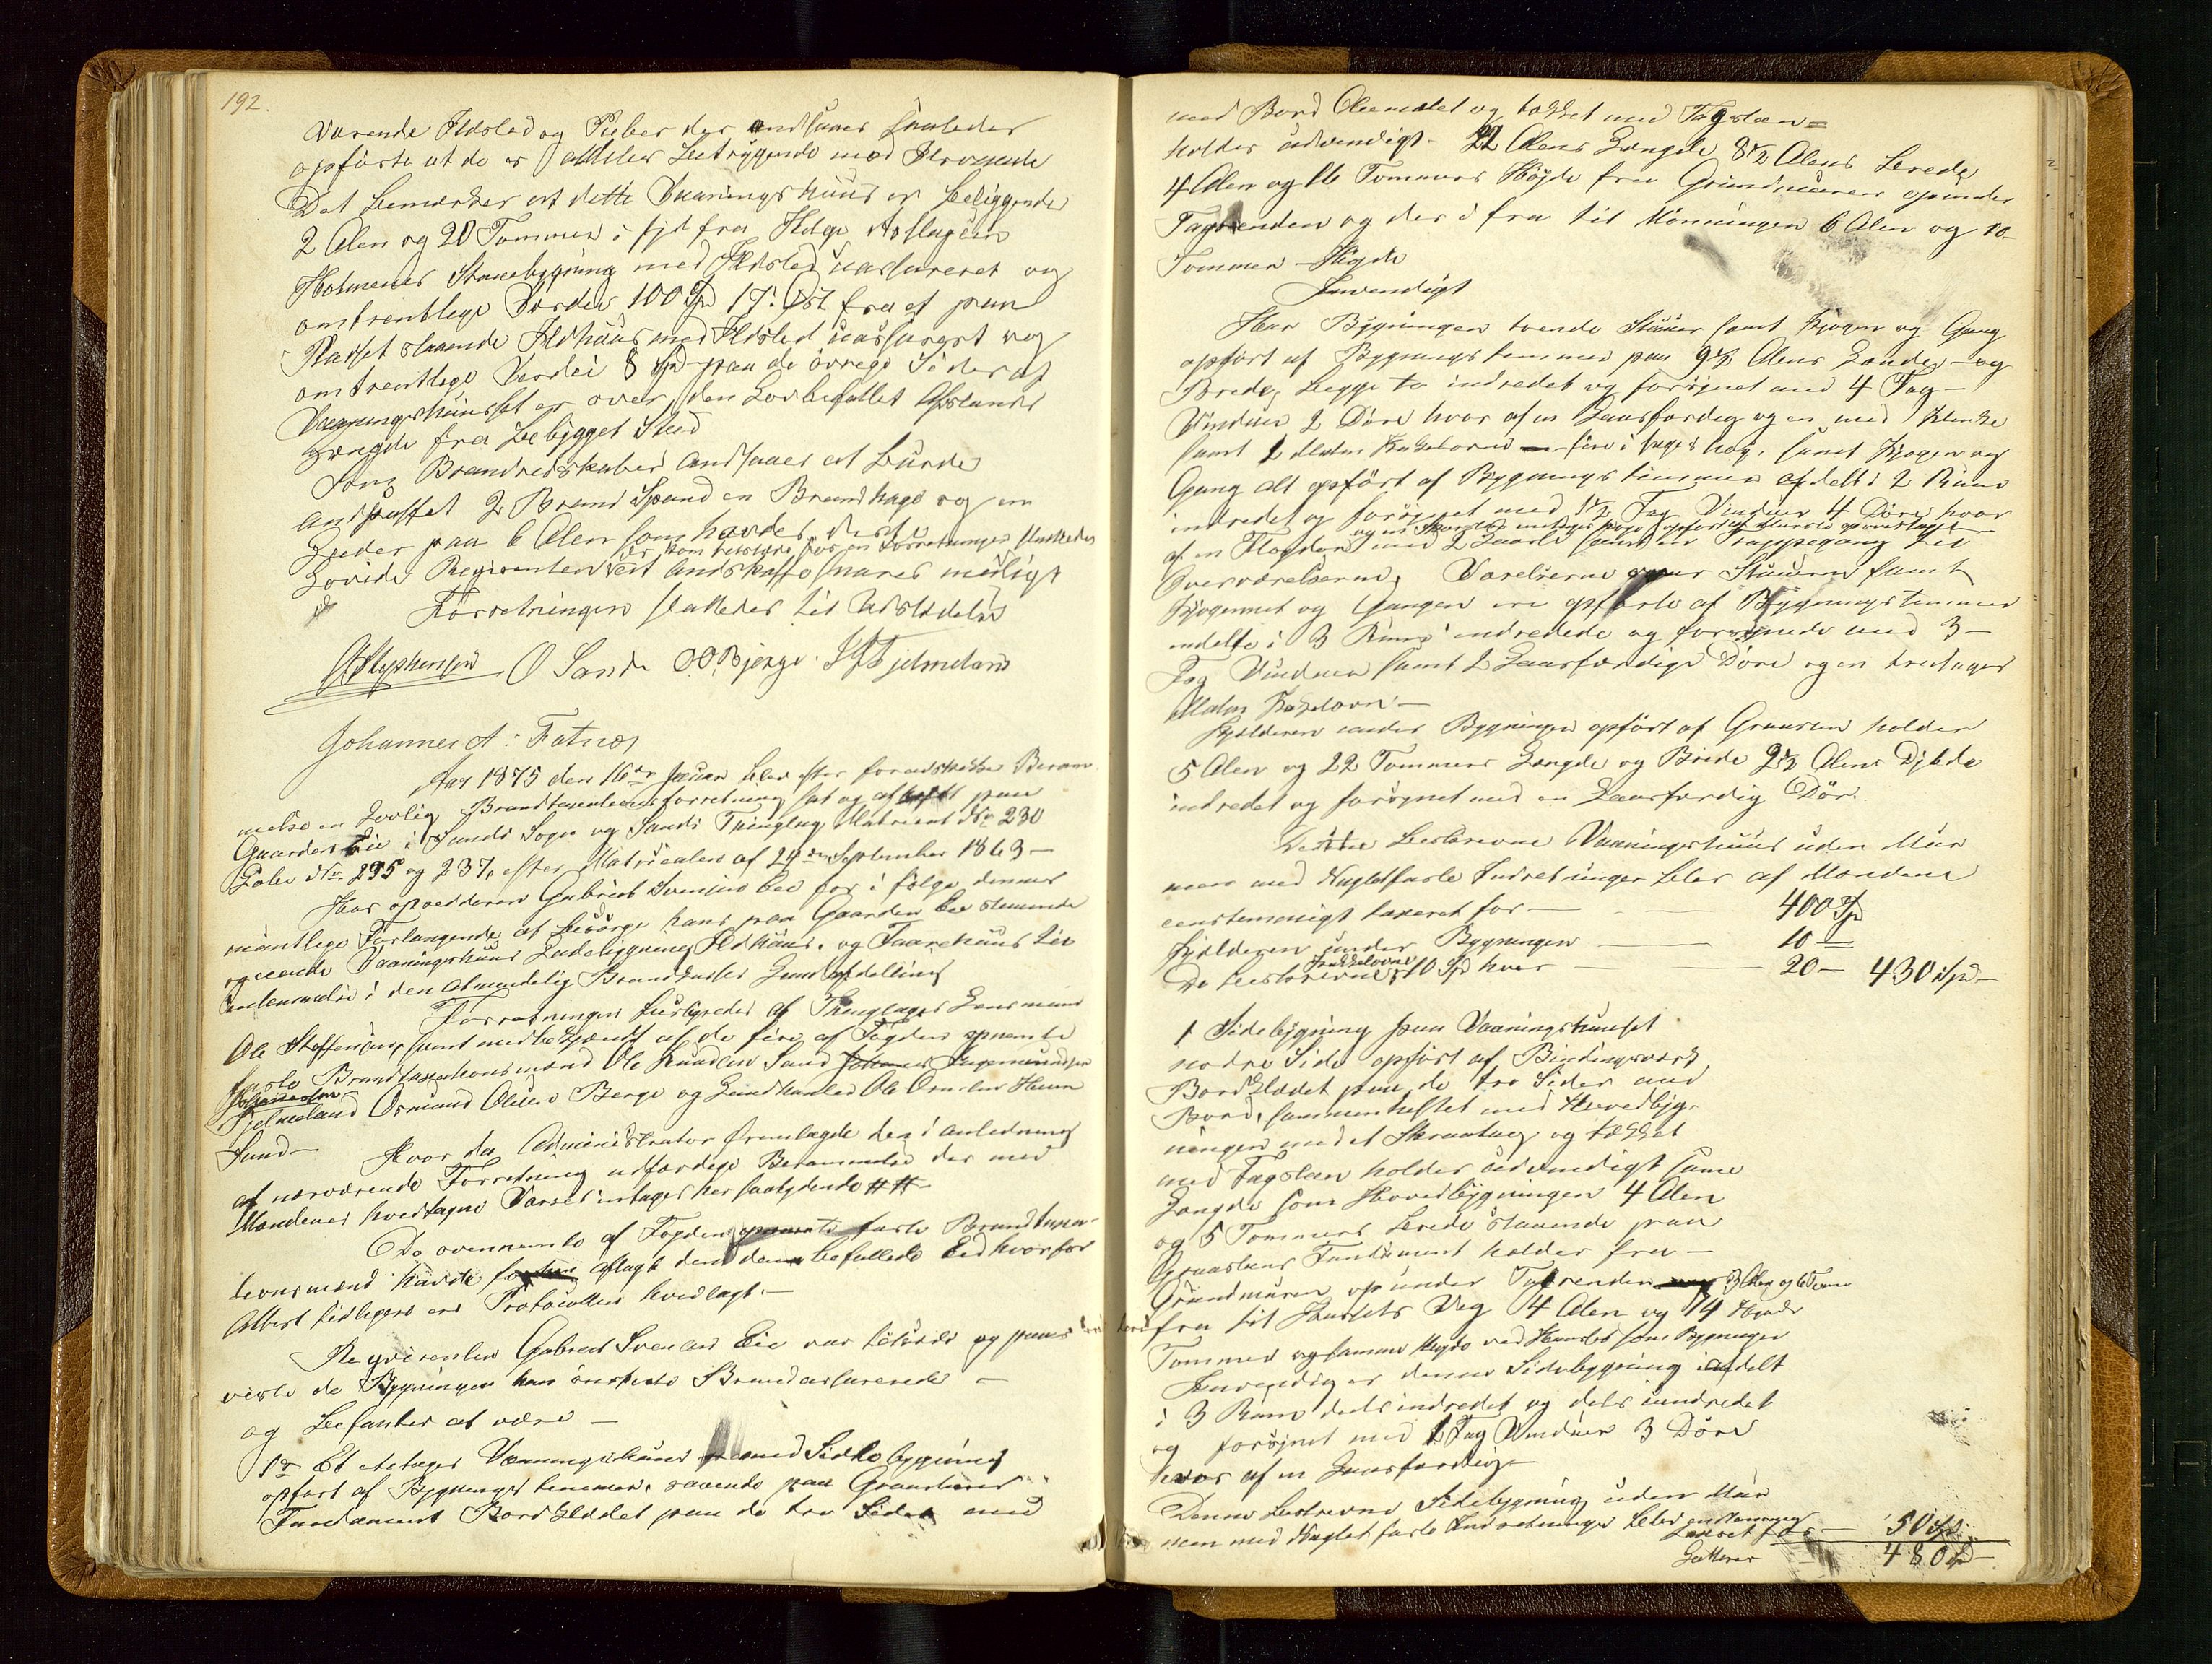 192.
værende Ildsted og Piber der ansaaes saaledes
opførte at de er aldeles betrygende mod Ildsvaade
Det bemerkes at dette Vaaningshuus er beliggende
2 Alen og 20 Tommer i syd fra Helge Aslagsen
Holmenes Stuebygning med Ildsted uassureret og
omtrentlige Værdie 100 Spd 17 Al fra et paa
Pladset staaende Ildhuus med Ildsted uassureret og
omtrentlige Værdie 8 Spd paa de øvrege Sider af
Vaaningshuuset er over den Lovbefallet Afstands
Længde fra bebygget Sted
Som Brandredskaber ansaaes at burde
anskaffet 2 Brand Spand en Brandhage og en
Leder paa 6 Alen som havdes desto
lovede Reqvirenten at anskaffe snarest muligt
der som tilstede for en Forretningen sluttedes
Forretningen sluttedes til Udstedelse
O Stephensen O Sande O O Bjerge S H Fjelmeland
Johannes A: Fatnes
Aar 1875 den 16de Januar blev efter forudskikke Beram-
melse en Lovlig Brandtaxationsforretning sat og afholdt paa
Gaarden Eie i Sands Sogn og Sands Thinglag Matricul No 230
Løbe No 235 og 237, efter Matriculen af 24de September 1863 —
Hos opsidderen Gabriel Svensen Eie for i følge dennes
mundtlige Forlangende at besørge hans paa Gaarden Eie staaende
og eiende Vaaningshuus Ladebygning Ildhuus og Faarehuus til
Indlemmelse i den almindelig Brandkasses Land afdelling
Forretningen bestyredes af Thinglagets Lensmand
Ole Steffensen, samt medbetjendt af de fire af Fogden opnævnte
faste Brandtaxationsmænd Ole Knudsen Sand Johannes Ingemundsen
Fjelmeland Osmund Olsen Berge og Landhandler Ole Osmundsen
Sand — Hvor da Administrator fremlagde den i anledning
af nærværende Forretning udfærdige Berammelse der med
Mændenes hvedtagne Varsel intages her saalydende ## —
De ovennævnte af Fogden opnævnte faste Brandtaxa-
tionsmænd havde forhen aflagt den dem befallede Eed hvorfor
Attest tidligere er Protocollen hvedlagt. —
Reqvirenten Gabriel Svensen Eie var tilstede og paa-
viste de Bygninger han ønskede Brandassurerede —
og befantes at være —
1o Et etetages Vaaningshuus med Sidebygning
opført af Bygnings tømmer, staaende paa Graasteens
Fundament Bordklædet paa de tre Sider med
med Bord Oliemalet og tækket med Tagsteen =
holder udvendigt 22 Alens Længde 8½ Alens Brede
4 Alen og 16 Tommers Høyde fra Grundmuuren op under
Tagrenden og der i fra til Mønningen 6 Alen og 10
Tommer Høyde
Invendigt
Har Bygningen tvende Stuer samt Kjøken og Gang
opført af Bygningstømmer paa 9½ Alens Længde — og
Brede, begge to indredet og forsynet med 4 Fag —
Vinduer 2 Døre hvor af en Laasfærdig og en med Klinke
samt 1 Malm Kakelovn — fire i Etager høy, samt Kjøken og
Gang alt opført af Bygningstømmer afdelt i 2 Rum
indredet og forsynet med 1½ Fag Vinduer 4 Døre hvor
af en Fløydør med 2 Laase samt en Trappegang til
Overværelserne, Værelserne over Stuerne samt
Kjøkenet og Gangen ere opførte af Bygningstømmer
indelte i 3 Rum indredede og forsynede med 3 —
Fag Vinduer samt 2 Laasfærdige Døre og en treetages
Malm Kakelovn —
Kjelderen under Bygningen opført af Graasten holder
5 Alen og 22 Tommers Længde og Brede 2½ Alens Dybde
indredet og forsynet med en Laasfærdig Dør.
Dette beskrevne Vaaningshuus uden Muur
men med Naglefaste Indretninger blev af Mændene
eenstemmigt taxeret for — 400 Spd
Kjelderen under Bygningen — 10 —
De beskrevne Kakelovne 10 Spd hver — 20 — 430 Spd —
1 Sidebygning paa Vaaningshuuset
nordre Side opført af Bindingsværk
Bordklædet paa de tre Sider med
Bord, sammenheftet med Hovedbyg-
ningen med et Skraatag og tækket
med Tagsteen holder udvendigt samme
Længde som Hovedbygningen 4 Alen
og 5 Tommers Brede staaende paa
Graasteens Fundament holder fra —
Grundmuren op under Tagrenden 3 Alen og 6 Tom
fra til Huusets Veg 4 Alen og 14
Tommer og samme Høyde ved Huuset som Bygningen
Invendig er denne Sidebygning inddelt
i 3 Rum deels indredet og dels uindredet
og forsynet med 1 Fag Vinduer 3 Døre
hvor af en Laasfærdig —
Denne beskrevne Sidebygning uden Muur
men med Naglefaste Indretninger blev eenstemmig
taxeret for — 50 Spd
Latteres 480 Spd —